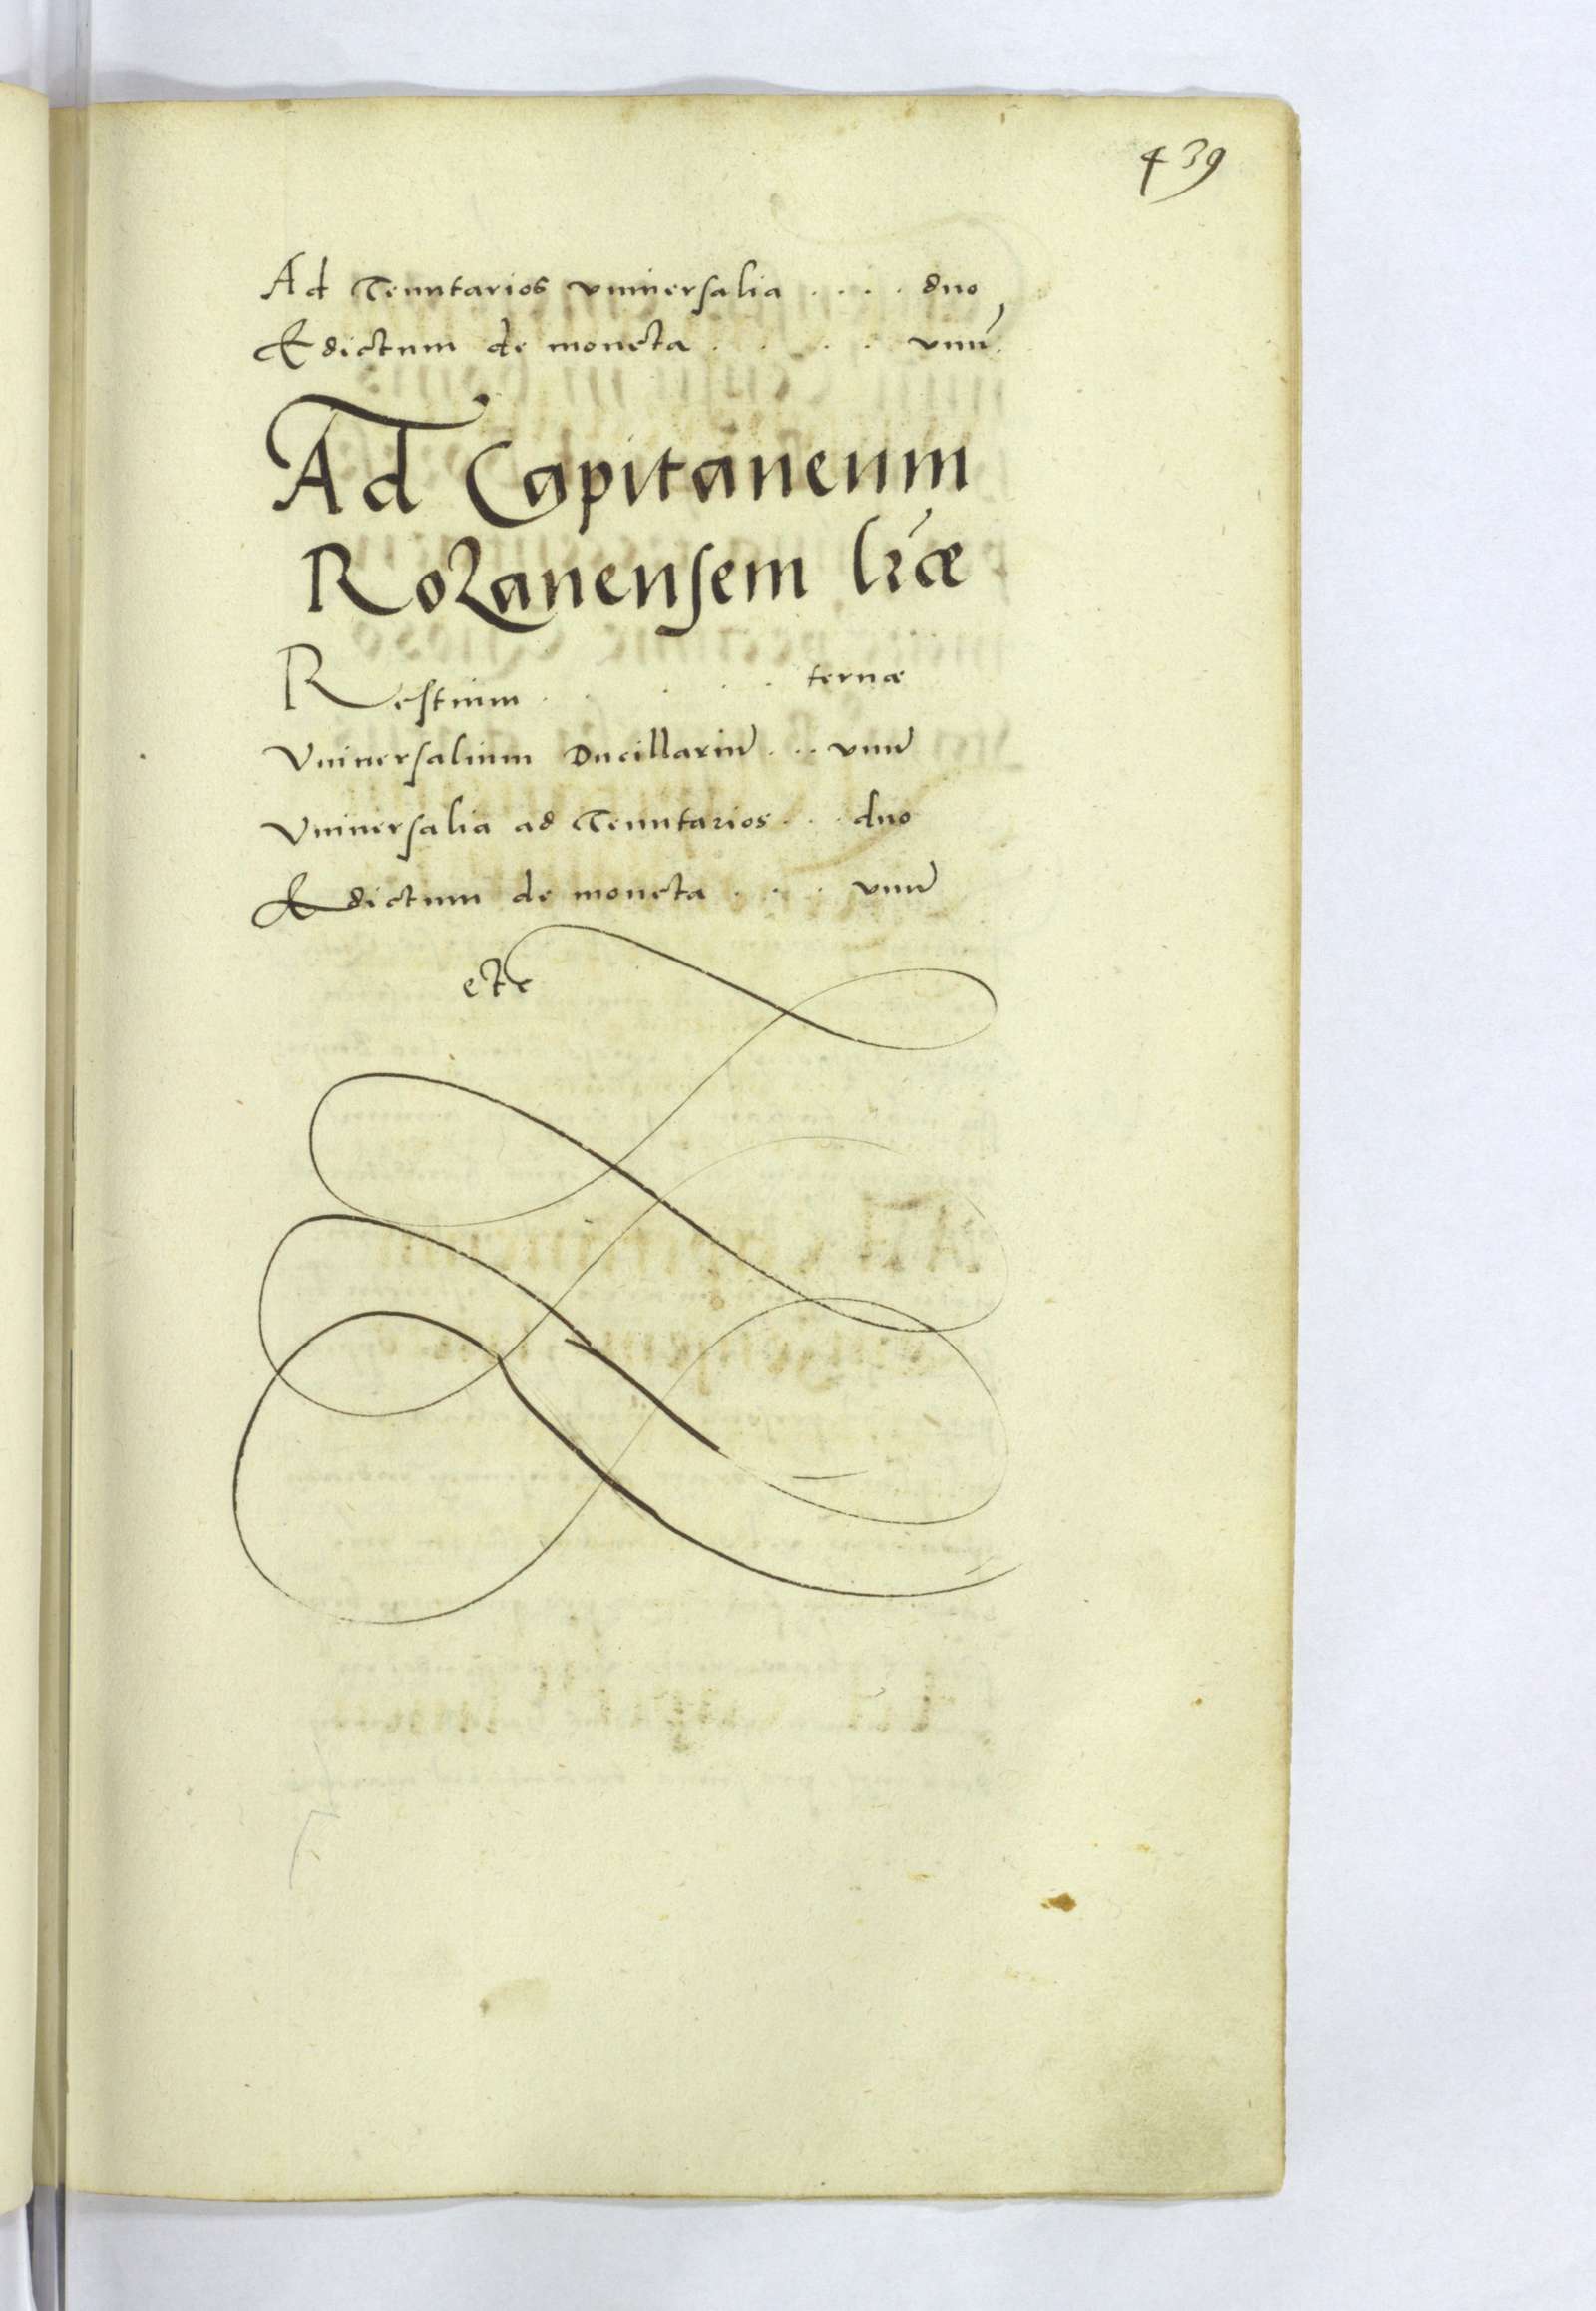 439
Ad Tenutarios vniuersalia . . . . duo
Edictum de moneta . . . . vnũ
Ad Capitaneum
Rozanensem lr̃æ
Restium . . . . . ternæ
Vniuersalium Ducillariũ . . . vnũ
Vniuersalia ad Tenutarios . . . duo
Edictum de moneta . . . vnũ
etc